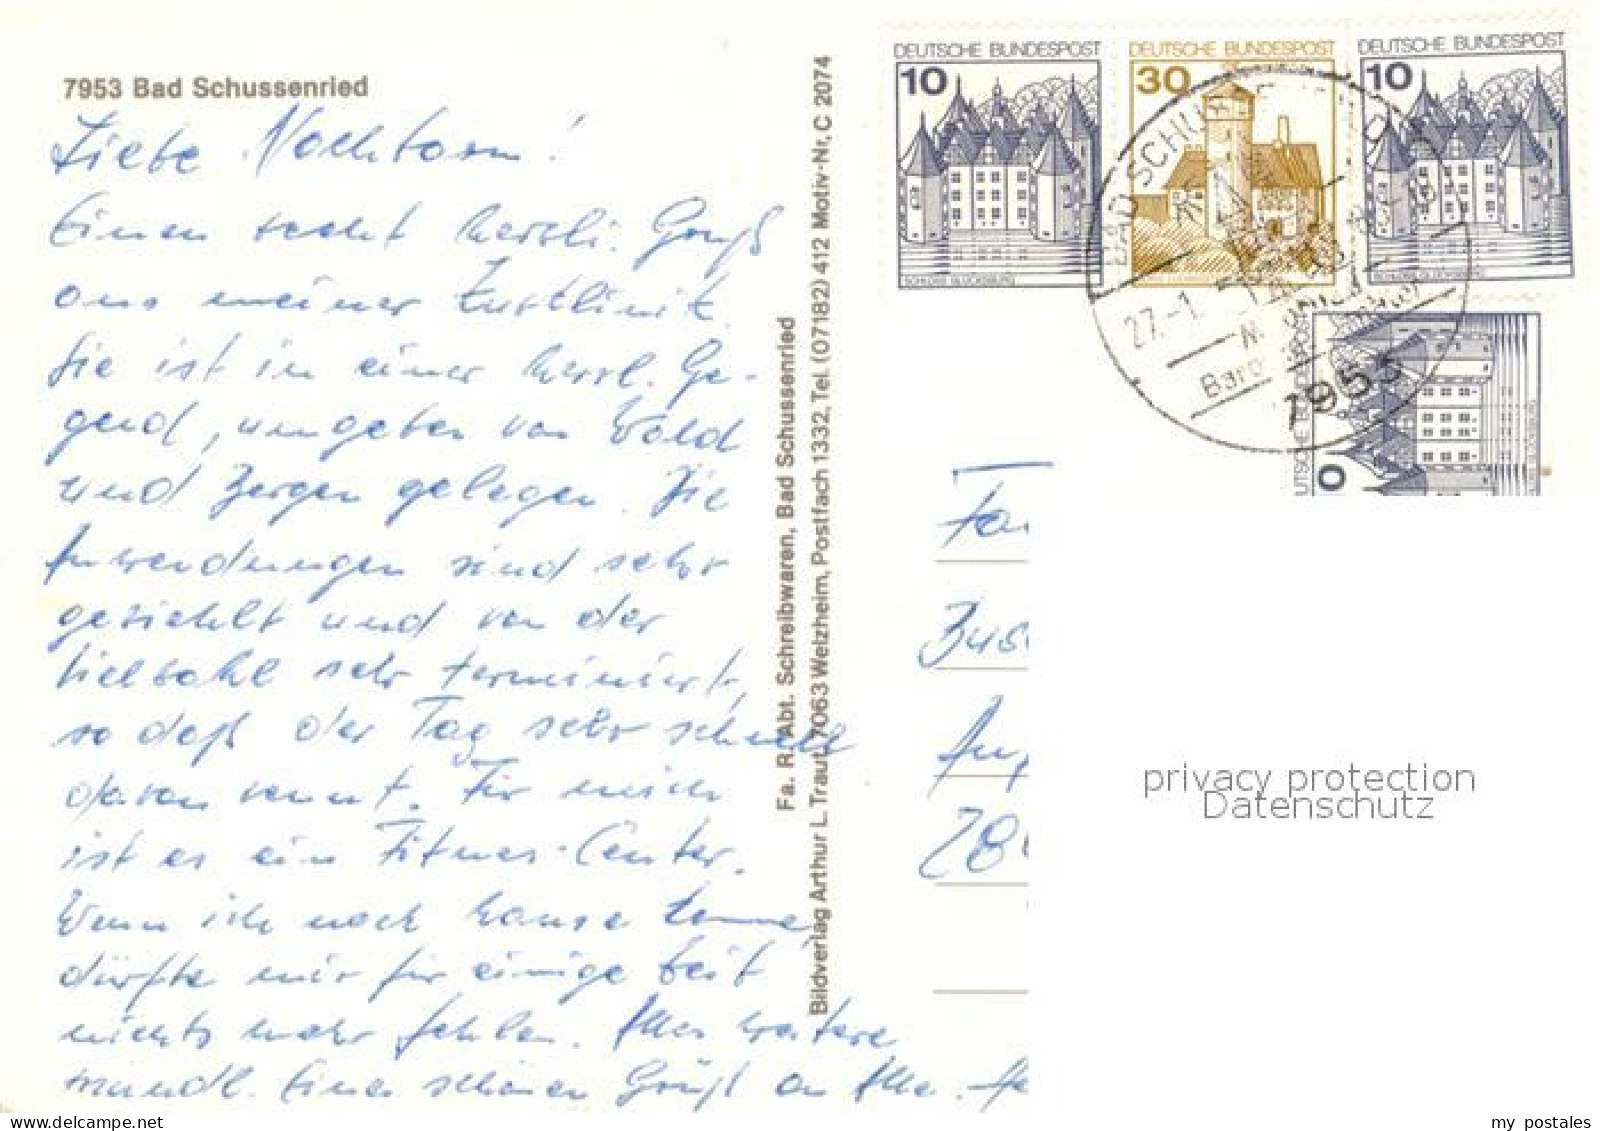 7953 Bad Schussenried
Liebe Nachbarn!
Einen recht herzli. Gruß
aus meiner Kurklinik.
Sie ist in einer herrl. Ge-
gend, umgeben von Wald
und Bergen gelegen. Die
Anwendungen sind sehr
geziehlt und von der
Vielzahl sehr terminiert,
so daß der Tag sehr schnell
davon rennt. Für mich
ist es ein Fitness-Center.
Wenn ich nach hause komme
dürfte mir für einige Zeit
nichts mehr fehlen. Alles weitere
mündl. Einen schönen Gruß an Alle.
Fa. R. Abt. Schreibwaren, Bad Schussenried
Bildverlag Arthur L. Traut, 7063 Welzheim, Postfach 1332, Tel. (07182) 412 Motiv-Nr. C 2074
DEUTSCHE BUNDESPOST
10
SCHLOSS GLÜCKSBURG
DEUTSCHE BUNDESPOST
30
DEUTSCHE BUNDESPOST
10
SCHLOSS GLÜCKSBURG
BAD SCHU
27.-1.
7953
privacy protection
Datenschutz
my postales